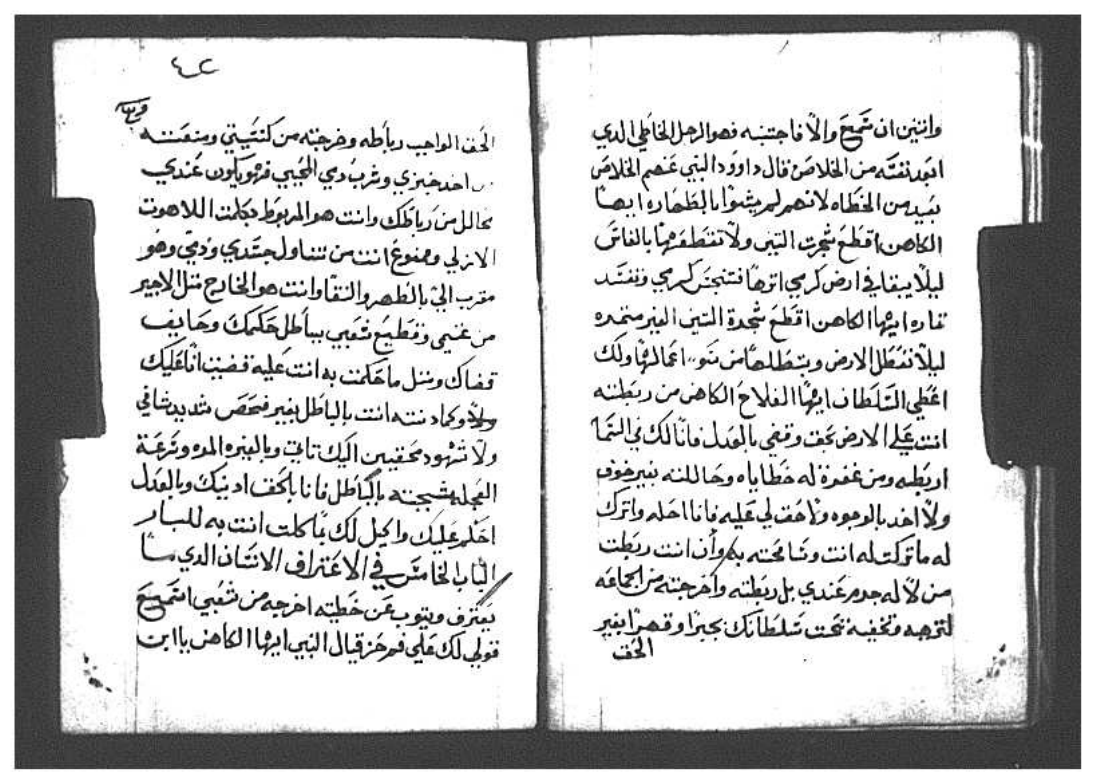 واثنين ان سمع والا فاجتنبه فهو الرجل الخاطي الدي
ابعد نفسه من الخلاص قال داوود النبي عنهم الخلاص
بعيد من الخطاه لانهم لم يشوا بالطهاره ايها
الكاهن اقطع شجرت التين ولا تقطعها بالفاس
ليلا يبقا في ارض كرمي اثرها فتنجس كرمي وتفسد
تماره ايها الكاهن اقطع شجرة التين الغير مثمره
ليلا تعطل الارض وتبطلها من اعمالها ولك
اعطي السلطان ايها الفلاح الكاهن من ربطته
انت علي الارض بحق وتقضي بالعدل فانا لك في السما
اربطه ومن غفرة له خطاياه وحاللته بغير خوف
ولا اخد بالوجوه ولا حق لي عليه فانا احله واترك
له ما تركت له انت وتسامحته به وأن انت ربطت
من لا له جرم عندي بل ربطته وأخرجته من الجماعه
لتزهبه وتخيفه تحت سلطانك بجبرا وقهرا بغير
الحق
الحق الواجب رباطه وخرجته من كنيستي ومنعته
من اخد خبزي وشرب دمي المحيي فهو يكون عندي
محالل من رباطك وانت هو المربوط بكلمت اللاهوت
الازلي وممنوع انت من تتناول جسدي ودمي وهو
مقرب الي بالطهر والنقا وانت هو الخارج متل الاجير
من غنمي وقطيع شعبي بباطل حكمك وحايف
قضاك ومتل ما حكمت به انت عليه قضيت انا عليك
وكما دنته انت بالباطل بغير فحص شديد شافي
ولا شهود محقين اليك تابت وبالغيره المره وترعة
العجله شجبته بالباطل فانا بالحق ادينك وبالعدل
احكم عليك واكيل لك بما كلت انت به للبار
الباب الخامس في الاعتراف الانسان الدي
يعترف ويتوب عن خطيته اخرجه من شعبي اسمع
قولي لك علي فم حزقيال النبي ايها الكاهن يا ابن